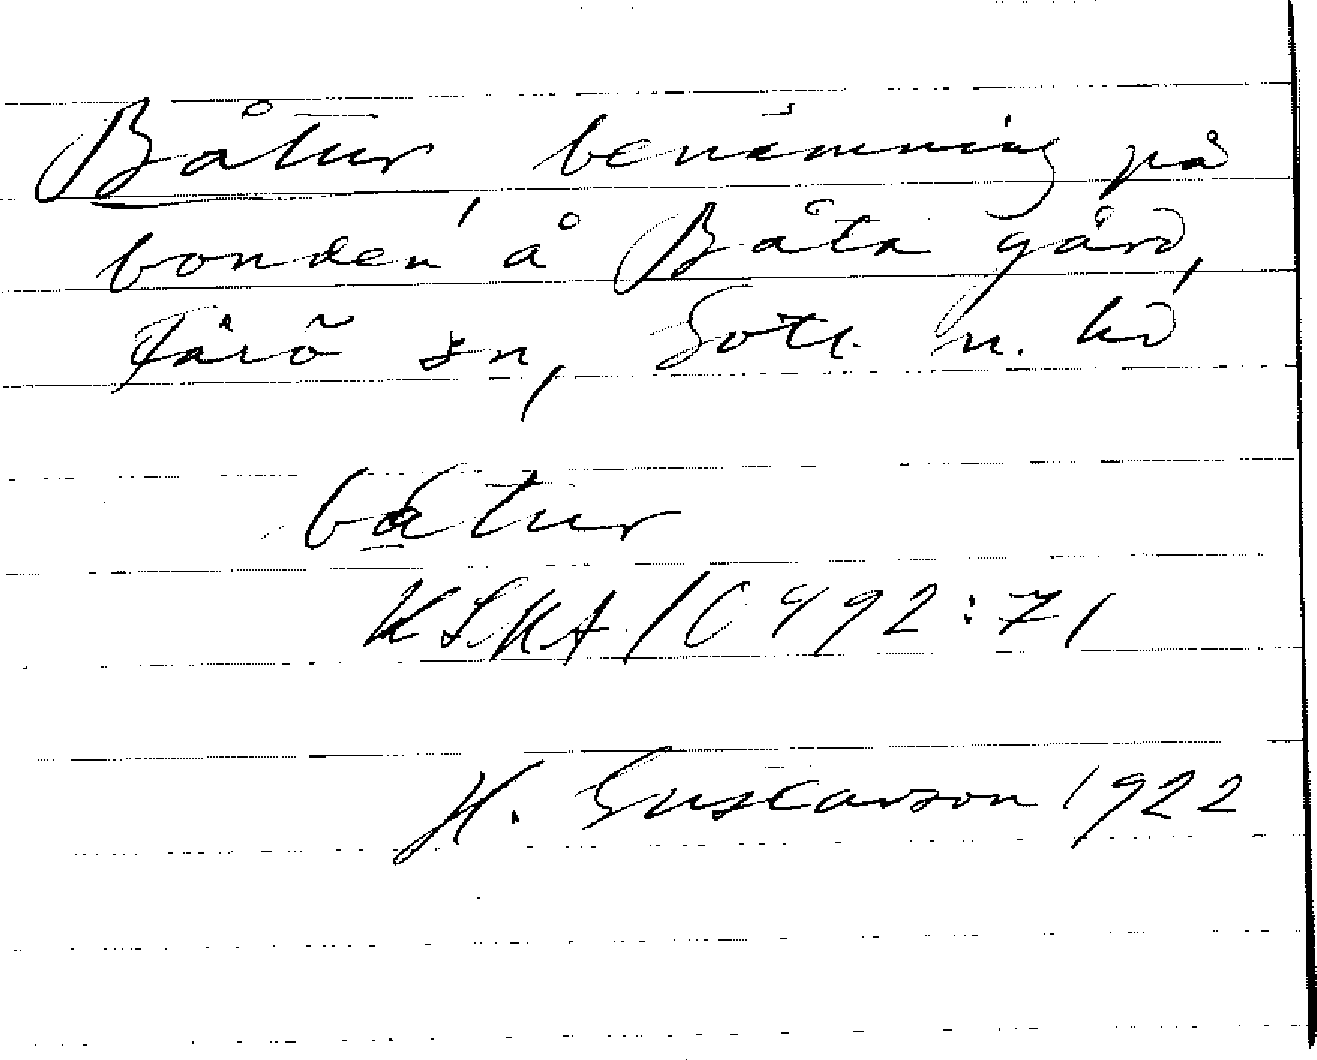 Båtur, benämning på
bonden å Båta gård,
Fårö sn, Gotl. n. hd
båtur
KLKA/C 492:71
H. Gustavson 1922